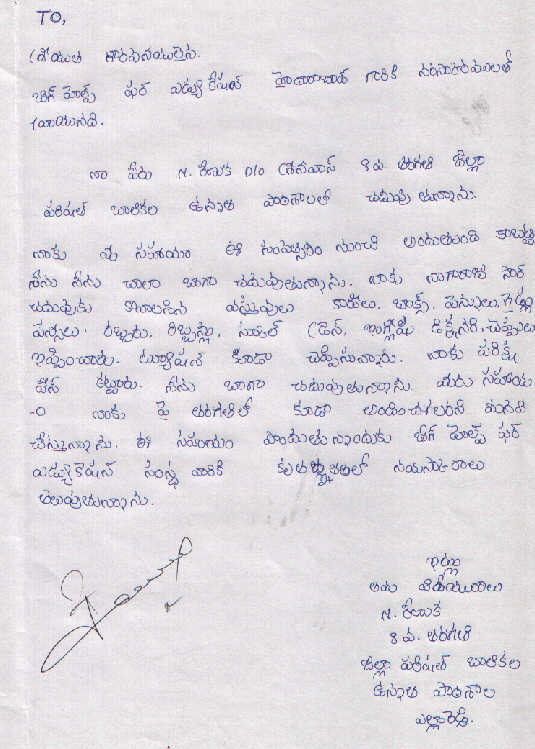 TO,
గౌరవనీయులైన
బిగ్ హెల్ప్ ఫర్ ఎడ్యుకేషన్ హైదరాబాద్ గారికి నమస్కారములతో
వ్రాయునది.
నా పేరు N. రేణుక D/O శ్రీనివాస్ 8 వ. తరగతి జిల్లా
పరిషత్ బాలికల ఉన్నత పాఠశాలలో చదువుతున్నాను.
నాకు మీ సహాయం ఈ సంవత్సరం నుంచి అందుతుంది కాబట్టి
నేను చాలా బాగా చదువుతున్నాను. నాకు సార్
చదువుకు కావలసిన వస్తువులు బాక్స్, పెన్నులు,
పెన్సిలు. రబ్బరు. రిబ్బన్లు, స్కూల్ డ్రెస్, ఇంగ్లీషు డిక్షనరీ. చెప్పులు
ఇప్పించారు. ట్యూషన్ కూడా చెప్పిస్తున్నారు. నాకు పరీక్ష
ఫీస్ కట్టారు. నేను బాగా చదువుతున్నాను. మీరు సహాయ
-ం నాకు పై తరగతిలో కూడా అందించగలరని మనవి
చేస్తున్నాను. ఈ సహాయం పొందుతున్నందుకు బిగ్ హెల్ప్ ఫర్
ఎడ్యుకేషన్ సంస్థ వారికి కృతజ్ఞతలతో నమస్కారాలు
తెలుపుతున్నాను.
ఇట్లు
తమ విధేయురాలు
N. రేణుక
8 వ. తరగతి
జిల్లా పరిషత్ బాలికల
ఉన్నత పాఠశాల
ఎల్లారెడ్డి.